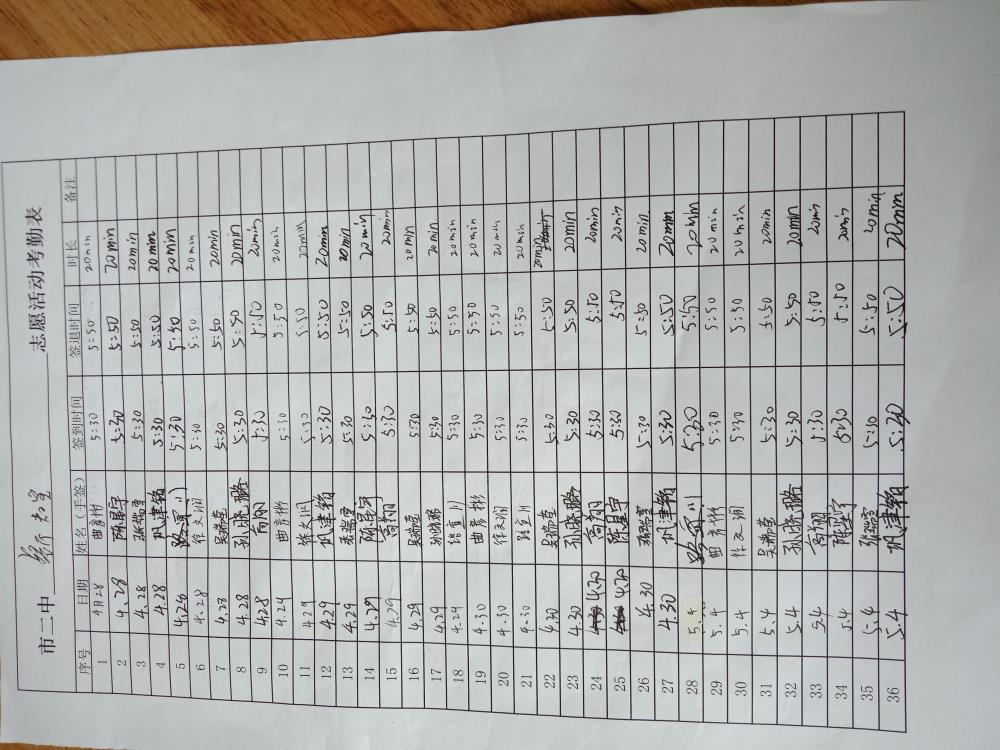 市二中 志愿活动考勤表
序号 日期 姓名（手签） 签到时间 签退时间 时长 备注
1 4月28 曲彦彬 5:30 5:50 20min
2 4.28 陈星宇 5:30 5:50 20min
3 4.28 张瑞雪 5:30 5:50 20min
4 4.28 5:30 5:50 20mm
5 4.28 5:30 5:50 20min
6 4.28 徐文润 5:30 5:50 20min
7 4.28 吴常莹 5:30 5:50 20min
8 4.28 孙晓璐 5:30 5:50 20min
9 4.28 高翔 5:30 5:50 20min
10 4.29 曲彦彬 5:30 5:50 20min
11 4.29 徐文润 5:30 5:50 20min
12 4.29 5:30 5:50 20min
13 4.29 5:30 5:50 20min
14 4.29 陈星宇 5:30 5:50 20min
15 4.29 高翔 5:30 5:50 20min
16 4.29 5:30 5:50 20min
17 4.29 5:30 5:50 20min
18 4.29 5:30 5:50 20min
19 4.30 曲彦彬 5:30 5:50 20min
20 4.30 徐文润 5:30 5:50 20min
21 4.30 5:30 5:50 20min
22 4.30 5:30 5:50 20min
23 4.30 孙晓璐 5:30 5:50 20min
24 4.30 高翔 5:30 5:50 20min
25 4.30 陈星宇 5:30 5:50 20min
26 4.30 张瑞雪 5:30 5:50 20min
27 4.30 5:30 5:50 20mm
28 5.4 5:30 5:50 20mm
29 5.4 曲彦彬 5:30 5:50 20min
30 5.4 徐文润 5:30 5:50 20min
31 5.4 5:30 5:50 20min
32 5.4 孙晓璐 5:30 5:50 20min
33 5.4 高翔 5:30 5:50 20min
34 5.4 陈星宇 5:30 5:50 20min
35 5.4 张瑞雪 5:30 5:50 20min
36 5.4 5:30 5:50 20mm